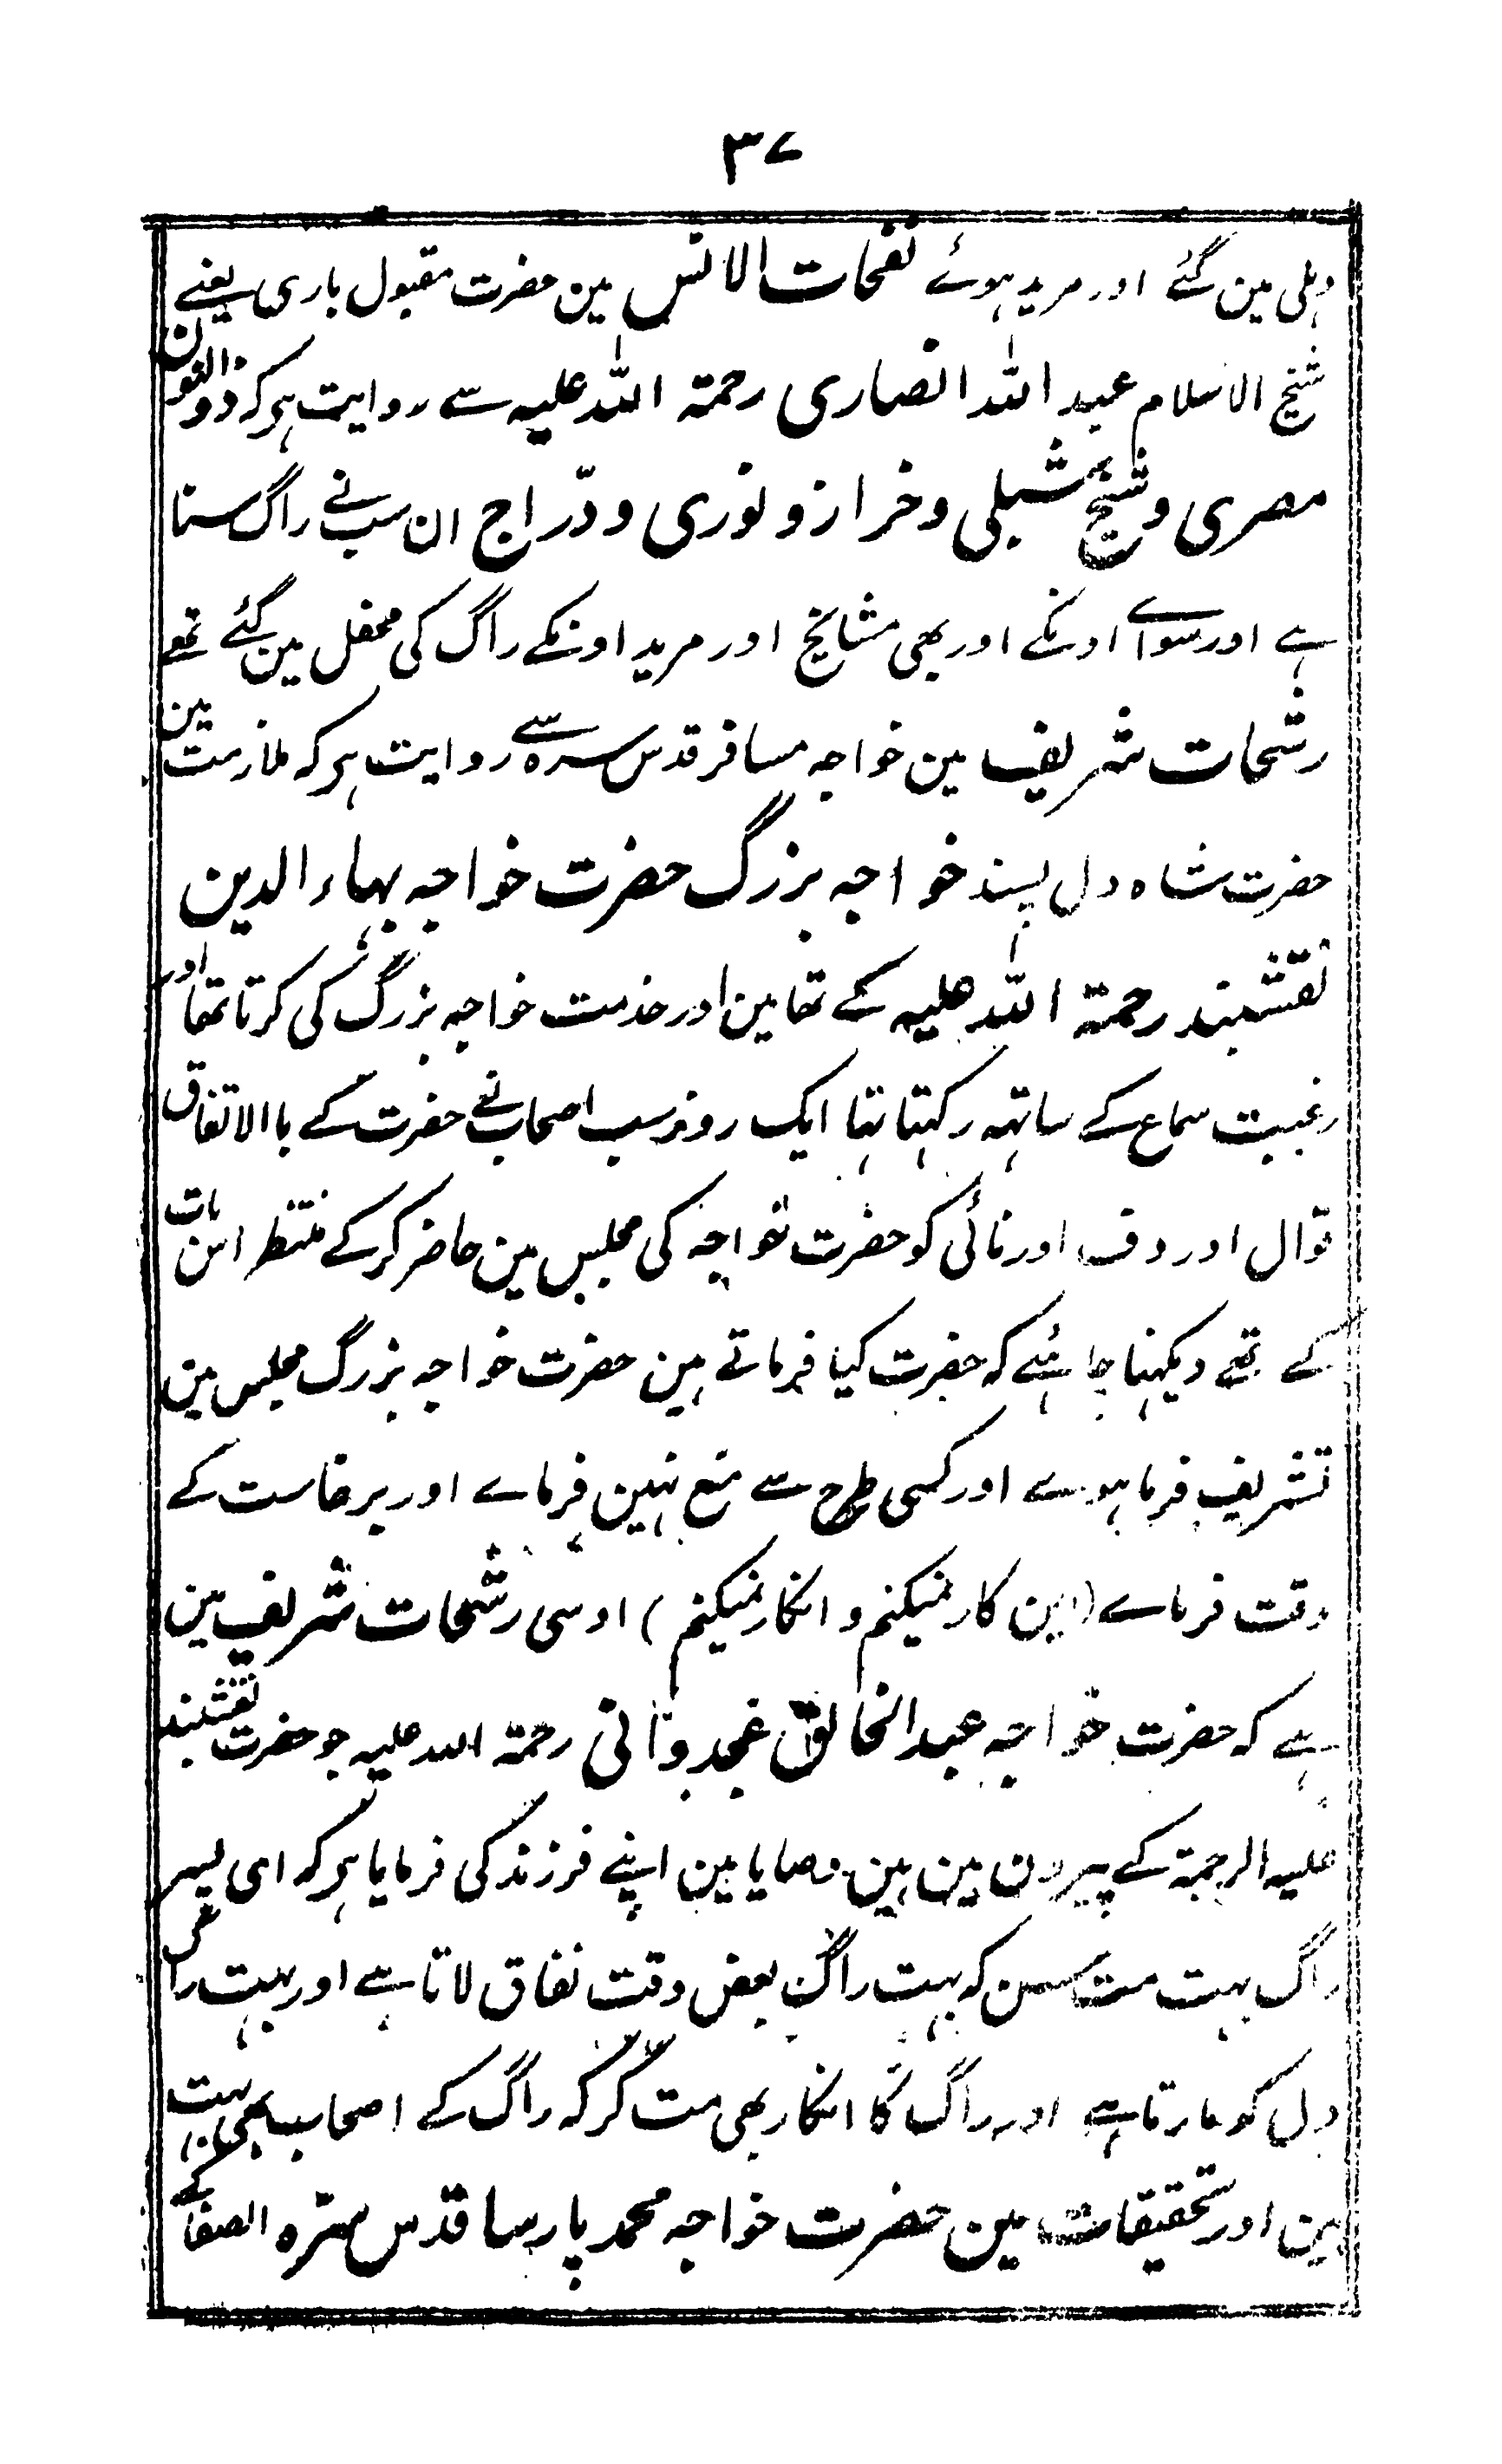 ۳۷
دہلی مین گئے اور مرید ہوئے نفحات الانس مین حضرت مقبول باری یعنے
شیخ الاسلام عبد اللہ انصاری رحمۃ اللہ علیہ سے روایت ہی کہ ذوالنون
مصری و شیخ شبلی و خراز و نوری و درّاج ان سب نے راگ سنا
ہے اور سوائے اونکے اور بھی مشایخ اور مرید اونکے راگ کی محفل مین گئے تھے
رشحات شریف مین خواجہ مسافر قدس سرہ سے روایت ہی کہ ملازمت مین
حضرت شاہ دل پسند خواجہ بزرگ حضرت خواجہ بہاء الدین
نقشبند رحمۃ اللہ علیہ کے تھا مین اور خدمت خواجہ بزرگ کی کرتا تھا اور
رغبت سماع کے ساتہہ رکہتا تہا ایک روز سب اصحاب نے حضرت کے باالاتفاق
قوّال اور دف اور نائی کو حضرت خواجہ کی مجلس مین حاضر کر کے منتظر اس بات
کے تھے دیکہنا چاہئے کہ حضرت کیا فرماتے ہین حضرت خواجہ بزرگ مجلس مین
تشریف فرما ہوے اور کسی طرح سے منع نہین فرماے اور برخاست کے
وقت فرماے (این کار نمیکنم و انکار نمیکنم) اوسی رشحات شریف مین
ہے کہ حضرت خواجہ عبد الخالق غجدوانی رحمۃ اللہ علیہ جو حضرت نقشبند
علیہ الرحمۃ کے پیرون مین ہین وصایا مین اپنے فرزند کی فرمایا ہی کہ ای پسر
راگ بہت مت سن کہ بہت راگ بعض وقت نفاق لاتا ہے اور بہت راگ
دل کو مارتا ہے اور راگ کا انکار بھی مت کر کہ راگ کے اصحاب بھی بہت
ہین اور تحقیقات مین حضرت خواجہ محمد پارسا قدس سرّہ الصفا کے